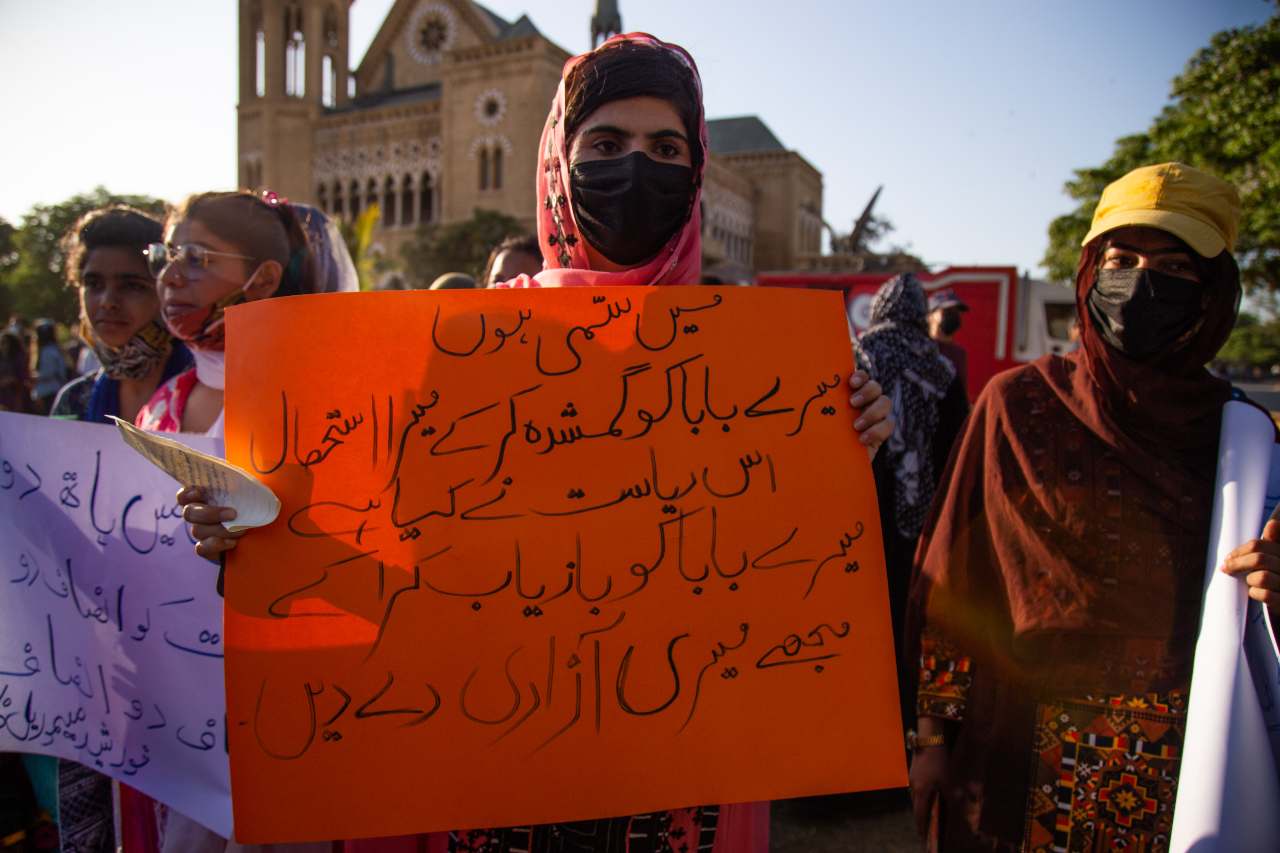 میں سمّی ہوں
میرے بابا کو گمشدہ کر کے میرا استحصال
اس ریاست نے کیا ہے
میرے بابا کو بازیاب کرا کے
مجھے میری آزادی دے دیں۔
میں ہاتھ دو
کو انصاف دو
دو انصاف